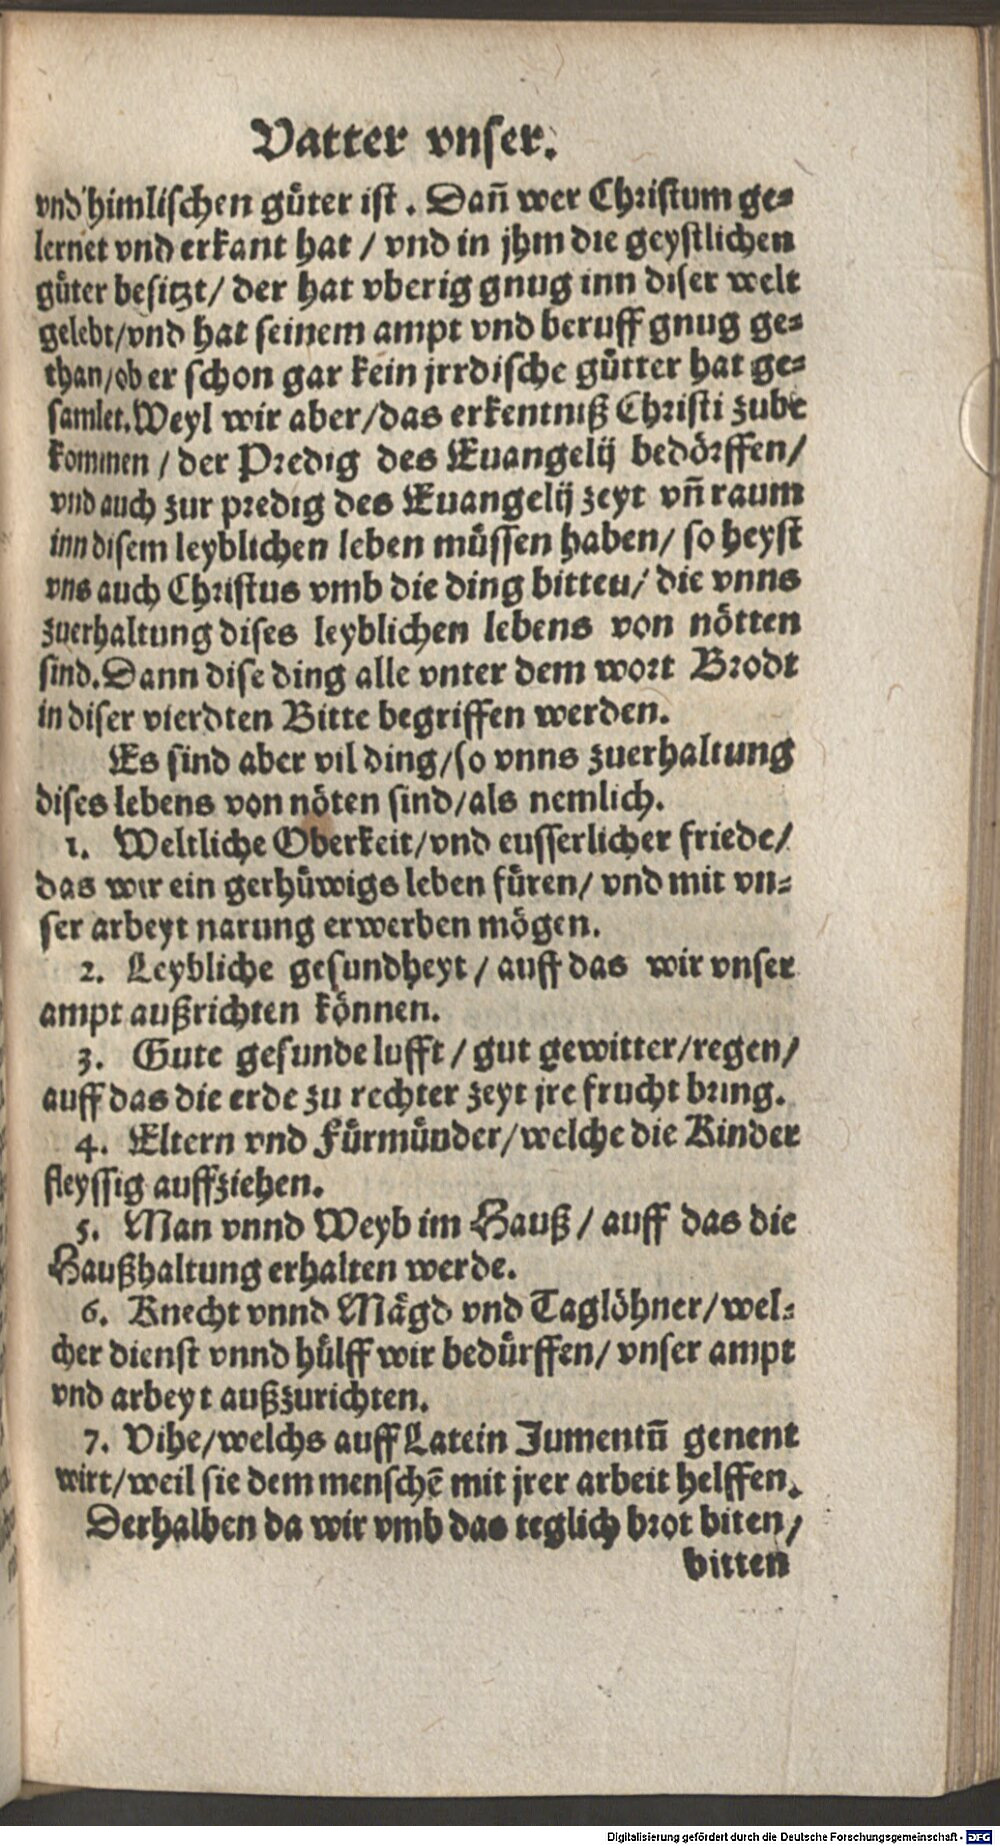 Vatter vnser.
vnd himlischen gůter ist. Dañ wer Christum ge-
lernet vnd erkant hat / vnd in jhm die geystlichen
gůter besitzt / der hat vberig gnug inn diser welt
gelebt / vnd hat seinem ampt vnd beruff gnug ge-
than / ob er schon gar kein jrrdische gůtter hat ge-
samlet. Weyl wir aber / das erkentniß Christi zube
kommen / der Predig des Euangelij bedörffen /
vnd auch zur predig des Euangelij zeyt vñ raum
inn disem leyblichen leben müssen haben / so heyst
vns auch Christus vmb die ding bitteu / die vnns
zuerhaltung dises leyblichen lebens von nötten
sind. Dann dise ding alle vnter dem wort Brodt
in diser vierdten Bitte begriffen werden.
Es sind aber vil ding / so vnns zuerhaltung
dises lebens von nöten sind / als nemlich.
1. Weltliche Oberkeit / vnd eusserlicher friede /
das wir ein gerhůwigs leben fůren / vnd mit vn-
ser arbeyt narung erwerben mögen.
2. Leybliche gesundheyt / auff das wir vnser
ampt außrichten können.
3. Gute gesunde lufft / gut gewitter / regen /
auff das die erde zu rechter zeyt jre frucht bring.
4. Eltern vnd Fůrmůnder / welche die Kinder
fleyssig auffziehen.
5. Man vnnd Weyb im Hauß / auff das die
Haußhaltung erhalten werde.
6. Knecht vnnd Mägd vnd Taglöhner / wel-
cher dienst vnnd hůlff wir bedůrffen / vnser ampt
vnd arbeyt außzurichten.
7. Vihe / welchs auff Latein Jumentū genent
wirt / weil sie dem menschē mit jrer arbeit helffen.
Derhalben da wir vmb das teglich brot biten /
bitten
Digitalisierung gefördert durch die Deutsche Forschungsgemeinschaft - DFG